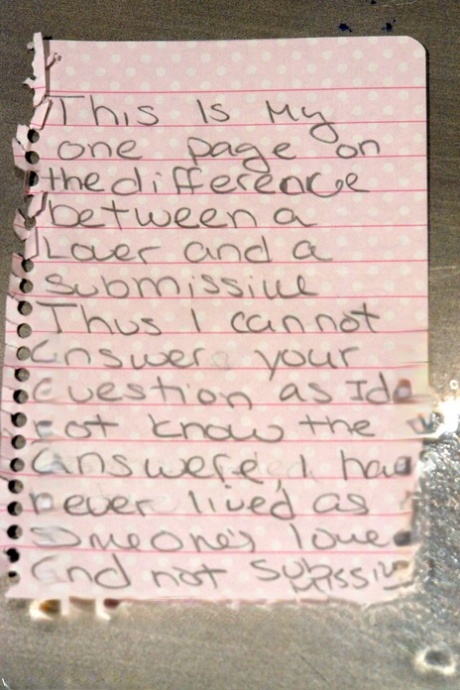 This Is My
one page on
the difference
between a
Lover and a
submissive
Thus I cannot
answer your
question as I do
not know the
answere, I had
never lived as
someone's lover
and not submissiv